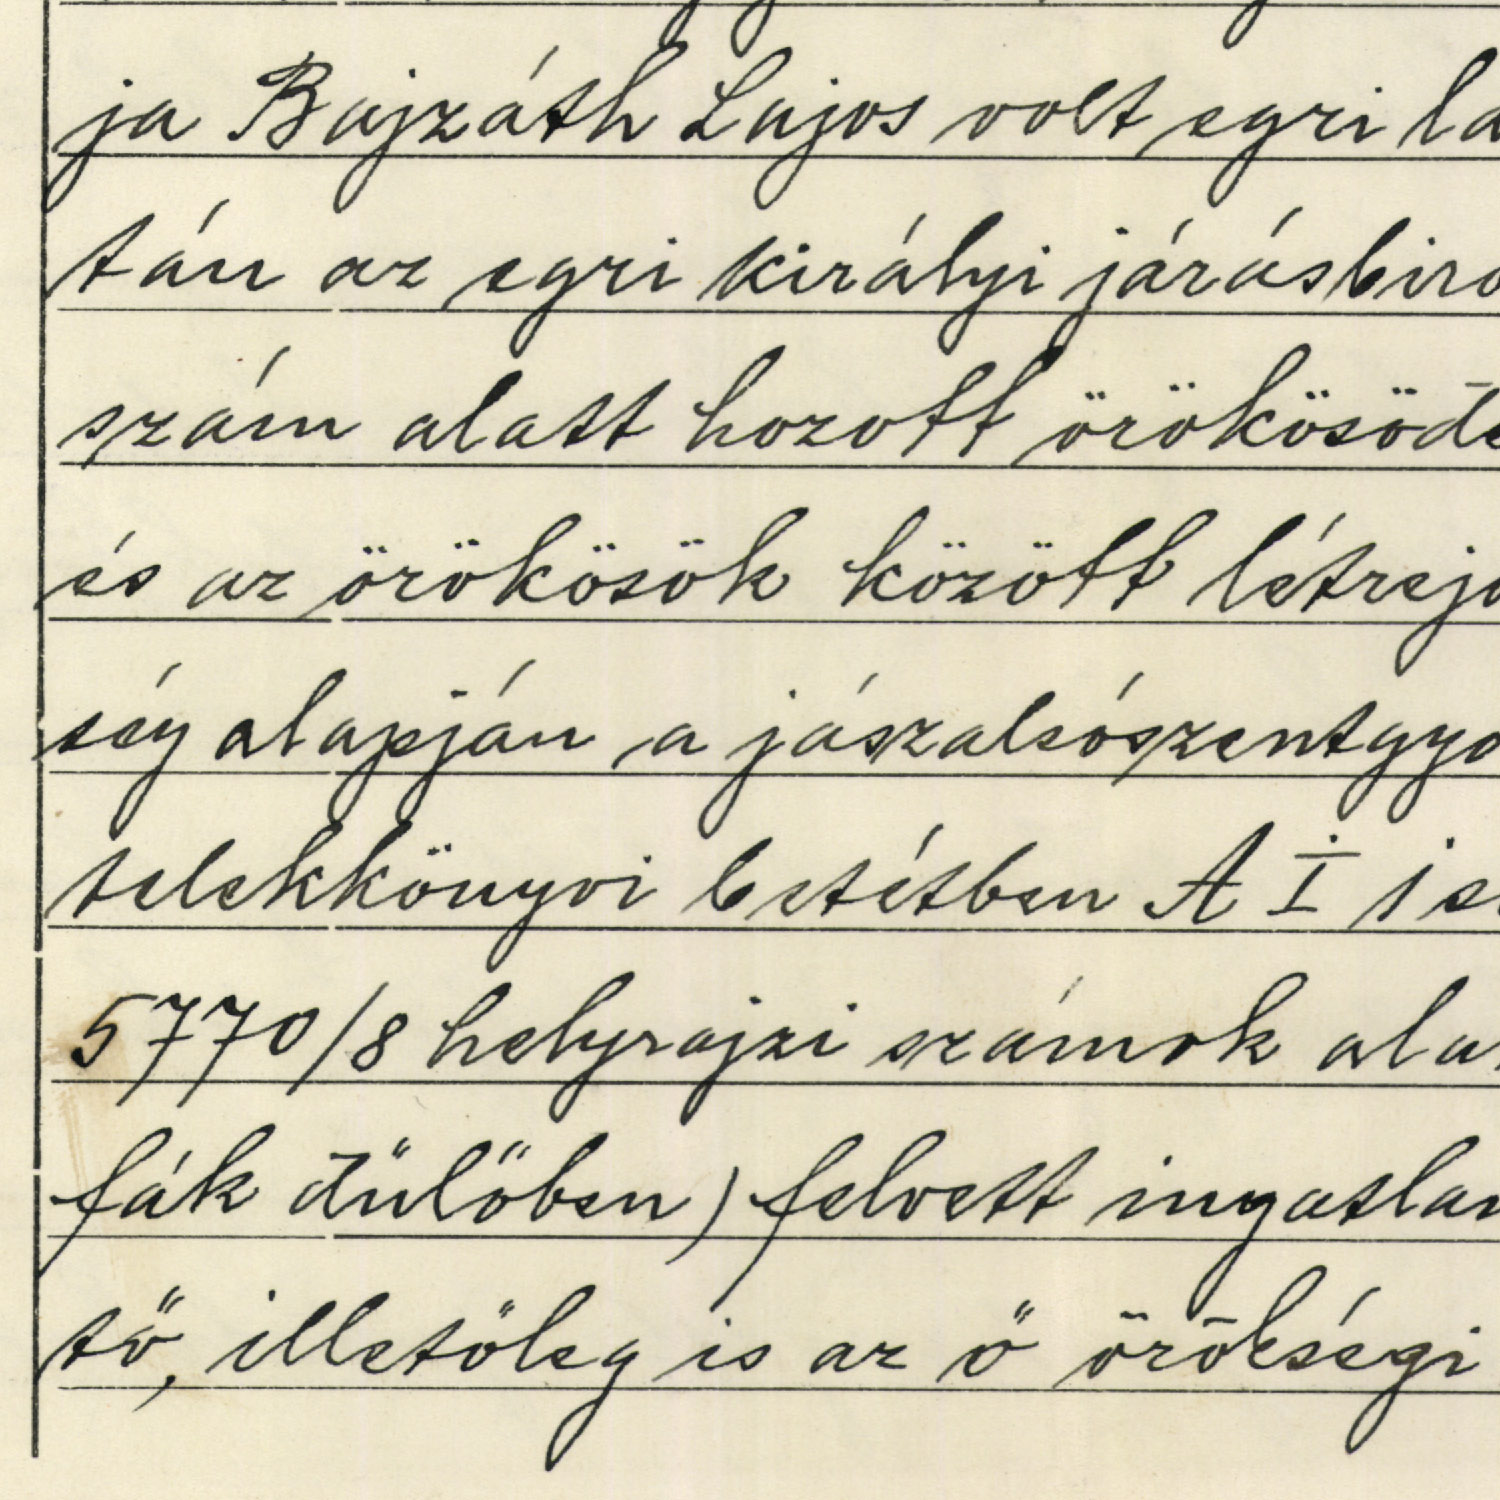 ja Bajzáth Lajos volt egri la
tán az egri királyi járásbiró
szám alatt hozott örökösöde
és az örökösök között létrejö
ség alapján a jászalsószentgyö
telekkönyvi betétben A I 1 so
5770/8 helyrajzi számok alat
fák dülőben) felvett ingatlan
tő, illetőleg is az ő örökségi